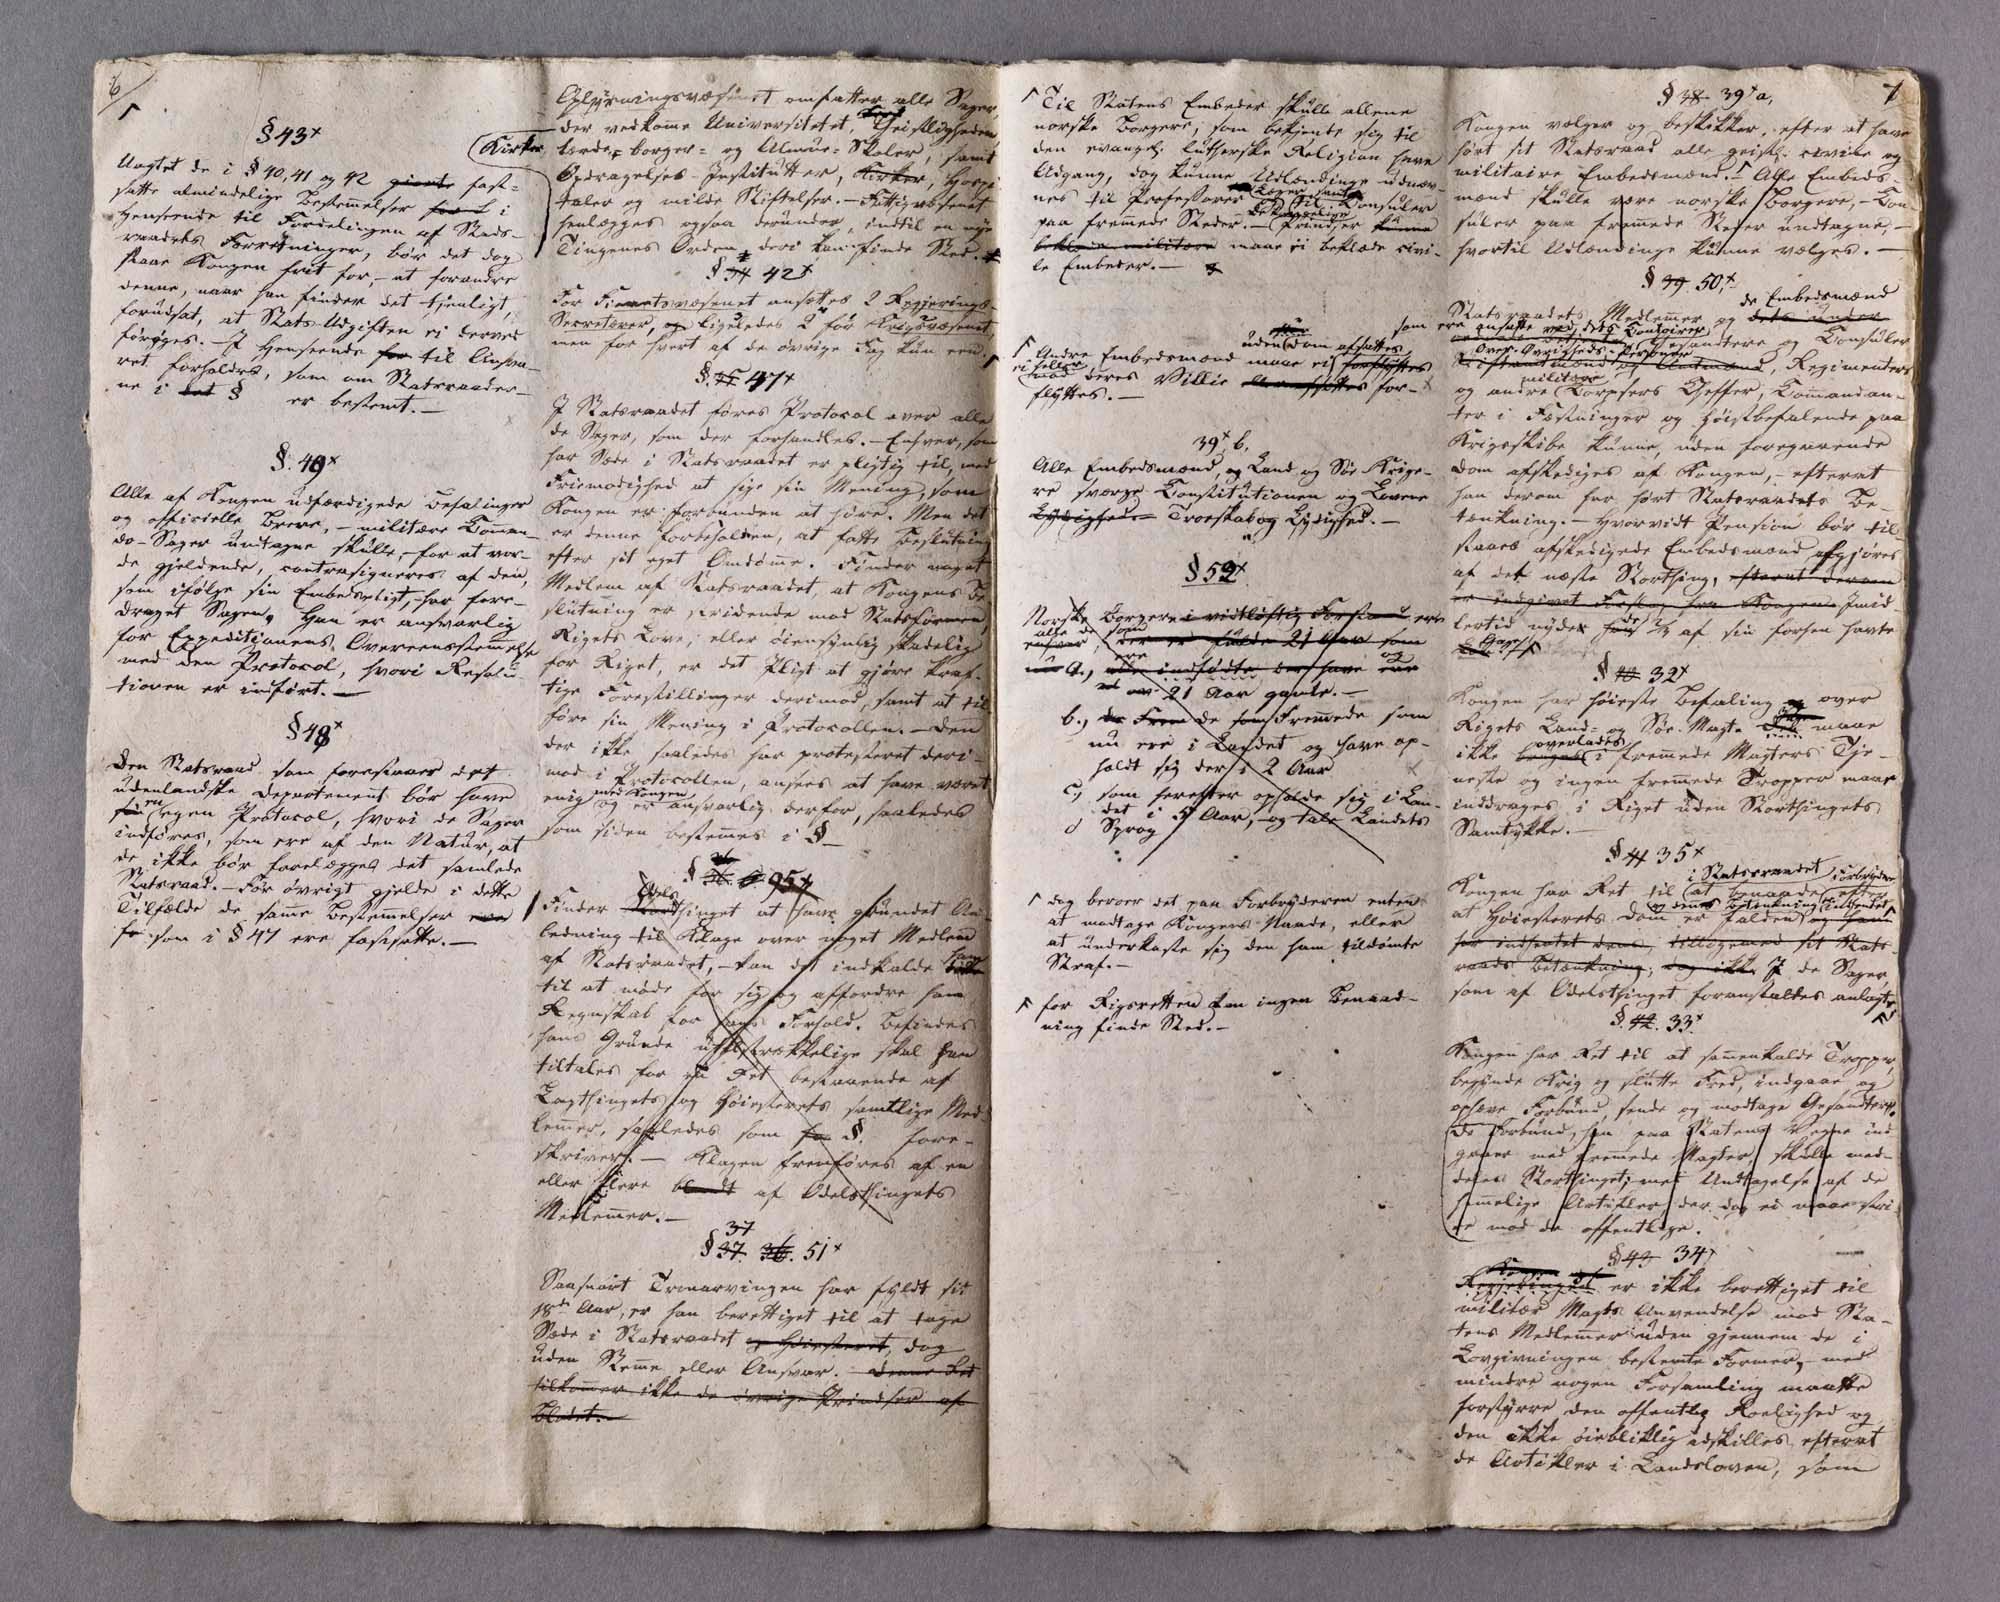 6
§ 43
Uagtet de i § 40, 41 og 42 fast-
satte almindelige Bestemmelser i
Henseende til Fordelingen af Stats-
raadets Forretninger, bør det dog
staae Kongen frit for, at forandre
denne, naar han finder det tjenligt,
forudsat, at Stats-Udgiften ei derved
forøges. – I Henseende til Ansva-
ret forholdes, som om Statsraader-
ne i § er bestemt. –
§. 49
Alle af Kongen udfærdigede Befalinger
og officielle Breve, – militære Comman-
do-Sager undtagne skulle, for at vor-
de gjeldende, contrasigneres af den,
som ifølge sin Embedspligt, har fore-
draget Sagen. Han er ansvarlig
for Expeditionens Overeensstemmelse
med den Protocol, hvori Resolu-
tionen er indført. –
§ 48
Den Statsraad som forestaaer det
udenlandske Departement bør have
egen Protocol, hvori de Sager
indføres, som ere af den Natur, at
de ikke bør forelægges det samlede
Statsraad. – For øvrigt gjelde i dette
Tilfælde de samme Bestemmelser
som i § 47 ere fastsatte. –
Oplysningsvæsenet omfatter alle Sager,
der vedkomme Universitetet, Geistligheden
Kirker
lærde- borger- og Almue-Skoler, samt
Opdragelses-Institutter, Kirker, Hospi-
taler og milde Stiftelser. – Fattigvæsenet
henlægges ogsaa derunder, indtil en nye
Tingenes Orden deri kan finde Sted.
§ 34 42
For Finantsvæsenet ansættes 2 Regjerings-
Secretærer, og ligeledes 2 for Krigsvæsenet,
men for hvert af de øvrige Fag kun een.
§. 35 47
I Statsraadet føres Protocol over alle
de Sager, som der forhandles. – Enhver, som
har Sæde i Statsraadet er pligtig til, med
Friemodighed at sige sin Mening, som
Kongen er forbunden at høre. Men det
er denne forbeholden, at fatte Beslutning
efter sit eget Omdømme. Finder noget
Medlem af Statsraadet, at Kongens Be-
slutning er stridende mod Statsformen,
Rigets Love, eller øiensynlig skadelig
for Riget, er det Pligt at gjøre kraf-
tige Forestillinger derimod, samt at til-
føre sin Mening i Protocollen. – Den
der ikke saaledes har protesteret deri-
mod i Protocollen, ansees at have været
enig med Kongen
og er ansvarlig derfor, saaledes
som siden bestemmes i §
§ 36 95
Finder Odels
thinget at have grundet An-
ledning til Klage over noget Medlem
af Statsraadet, – kan det indkalde
til at møde for sig og affordre ham
Regnskab for hans Forhold. Befindes
hans Grunde utilstrækkelige skal han
tiltales for en Ret bestaaende af
Lagthingets og Høiesterets samtlige Med-
lemmer, saaledes som §. fore-
skriver. – Klagen fremføres af en
eller flere af Odelsthingets
Medlemmer. –
37
§ 37. 36. 51
Saasnart Tronarvingen har fyldt sit
18de Aar, er han berettiget til at tage
Sæde i Statsraadet og Høiesteret, dog
uden Stemme eller Ansvar. – Denne Ret
tilkommer ikke de øvrige Prindser af
Blodet. –
Til Statens Embeder skulle allene
norske Borgere, som bekjende sig til
den evangel. lutherske Religion have
Adgang, dog kunne Udlændinge udnæv-
nes til Professorer Læger samt
til Consuler
paa fremmede Steder. – Prindser
maae ei beklæde civi-
le Embeder. –
Andre Embedsmænd maae ei
uden Dom afsættes
ei heller
mod deres Villie for-
flyttes. –
39 b.
Alle Embedsmænd, og Land og Søe Krige-
re sværge Constitutionen og Lovene
Lydighed. – Troeskab og Lydighed. –
§ 52
Norske Borgere ere
alle de som
21 Aar gamle. –
b., de Fremmede som
nu ere i Landet og have op-
holdt sig der i 2 Aar
c., som herefter opholde sig i Lan-
det i 5 Aar, og tale Landets
Sprog
dog beroer det paa Forbryderen enten
at modtage Kongens Naade, eller
at underkaste sig den ham tildømte
Straf. –
for Rigsretten kan ingen Benaad-
ning finde Sted. –
7
§ 38 39 a,
Kongen vælger og beskikker, efter at have
hørt sit Statsraad alle geistl. civile og
militaire Embedsmænd. Alle Embeds-
mænd skulle være norske Borgere, – Con-
suler paa fremmede Steder undtagne, –
hvortil Udlændinge kunne vælges. –
§ 39 50,
Statsraadets Medlemmer og de Embedsmænd
som ere ansatte ved dets Contoirer,
Gesandtere og Consuler
Over-Øvrigheds-Personer
Stiftamtmænd og Amtmænd, Regimenters
militære
og andre Corpsers Cheffer, Commandan-
ter i Fæstninger og Høistbefalende paa
Krigsskibe kunne, uden foregaaende
Dom afskediges af Kongen, – efterat
han derom har hørt Statsraadets Be-
tænkning. – Hvorvidt Pension bør til-
staaes afskedigede Embedsmænd afgjøres
af det næste Storthing, efterat derom
er indgivet Forslag fra Kongen. Imid-
lertid nyde de 2/3 af sin forhen havte
Gage.
§ 40 32
Kongen har høieste Befaling over
Rigets Land- og Søe-Magt. Den maae
ikke overlades i fremmede Magters Tje-
neste og ingen fremmede Tropper maae
inddrages i Riget uden Storthingets
Samtykke. –
§ 41 35
Kongen har Ret til i Statsraadet at benaade Forbrydere efter
at Høiesterets Dom er falden og dens Betænkning indhentet
I de Sager,
som af Odelsthinget foranstaltes anlagte
§. 42. 33
Kongen har Ret til at sammenkalde Tropper,
begynde Krig og slutte Fred, indgaae og
ophæve Forbund, sende og modtage Gesandtere.
De Forbund, han paa Statens Vegne ind-
gaaer med fremmede Magter, skulle med-
deles Storthinget, med Undtagelse af de
hemmelige Artikler, der dog ei maae stri-
de mod de offentlige.
§ 43 34
Regjeringen er ikke berettiget til
militær Magts Anvendelse mod Sta-
tens Medlemmer uden gjennem de i
Lovgivningen bestemte Former, – med
mindre nogen Forsamling maatte
forstyrre den offentlig Roelighed og
den ikke øieblikkelig adskilles efterat
de Artikler i Landsloven, som